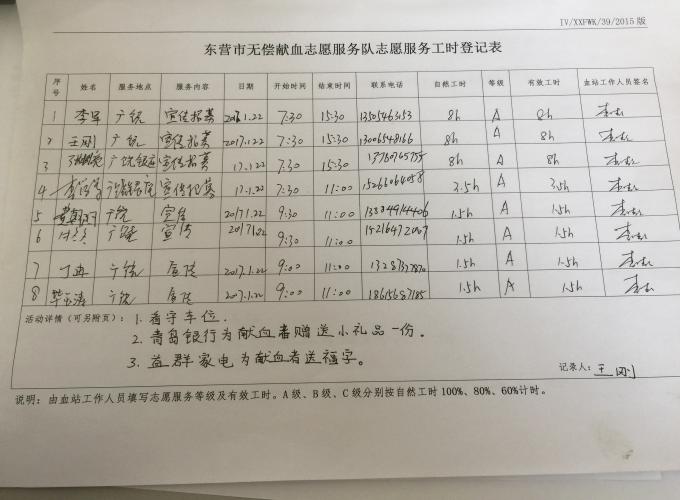 IV/XXFWK/39/2015版
东营市无偿献血志愿服务队志愿服务工时登记表
序号 姓名 服务地点 服务内容 日期 开始时间 结束时间 联系电话 自然工时 等级 有效工时 血站工作人员签名
1 李军 广饶 宣传招募 1.22 7:30 15:30 8h A 8h
2 王刚 广饶 宣传招募 2017.1.22 7:30 15:30 13006548166 8h A 8h
3 广饶 宣传招募 17.1.22 7:30 15:30 8h A 8h
4 宣传招募 17.1.22 7:30 11:00 15266064058 3.5h A 3.5h
5 广饶 宣传 2017.1.22 9:30 11:00 1.5h A 1.5h
6 广饶 宣传 2017.1.22 9:30 11:00 1.5h A 1.5h
7 广饶 宣传 2017.1.22 9:00 11:00 1.5h A 1.5h
8 广饶 宣传 2017.1.22 9:00 11:00 18615687185 1.5h A 1.5h
活动详情（可另附页）： 1. 看守车位.
2. 青岛银行为献血者赠送小礼品一份.
3. 益群家电为献血者送福字.
记录人: 王刚
说明：由血站工作人员填写志愿服务等级及有效工时。A级、B级、C级分别按自然工时100%、80%、60%计时。